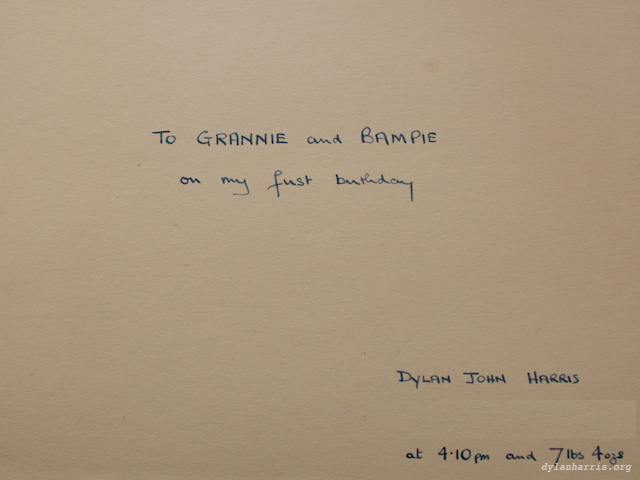 To GRANNIE and BAMPIE
on my first birthday
DYLAN JOHN HARRIS
at 4.10 pm and 7 lbs 4 ozs
dylanharris.org